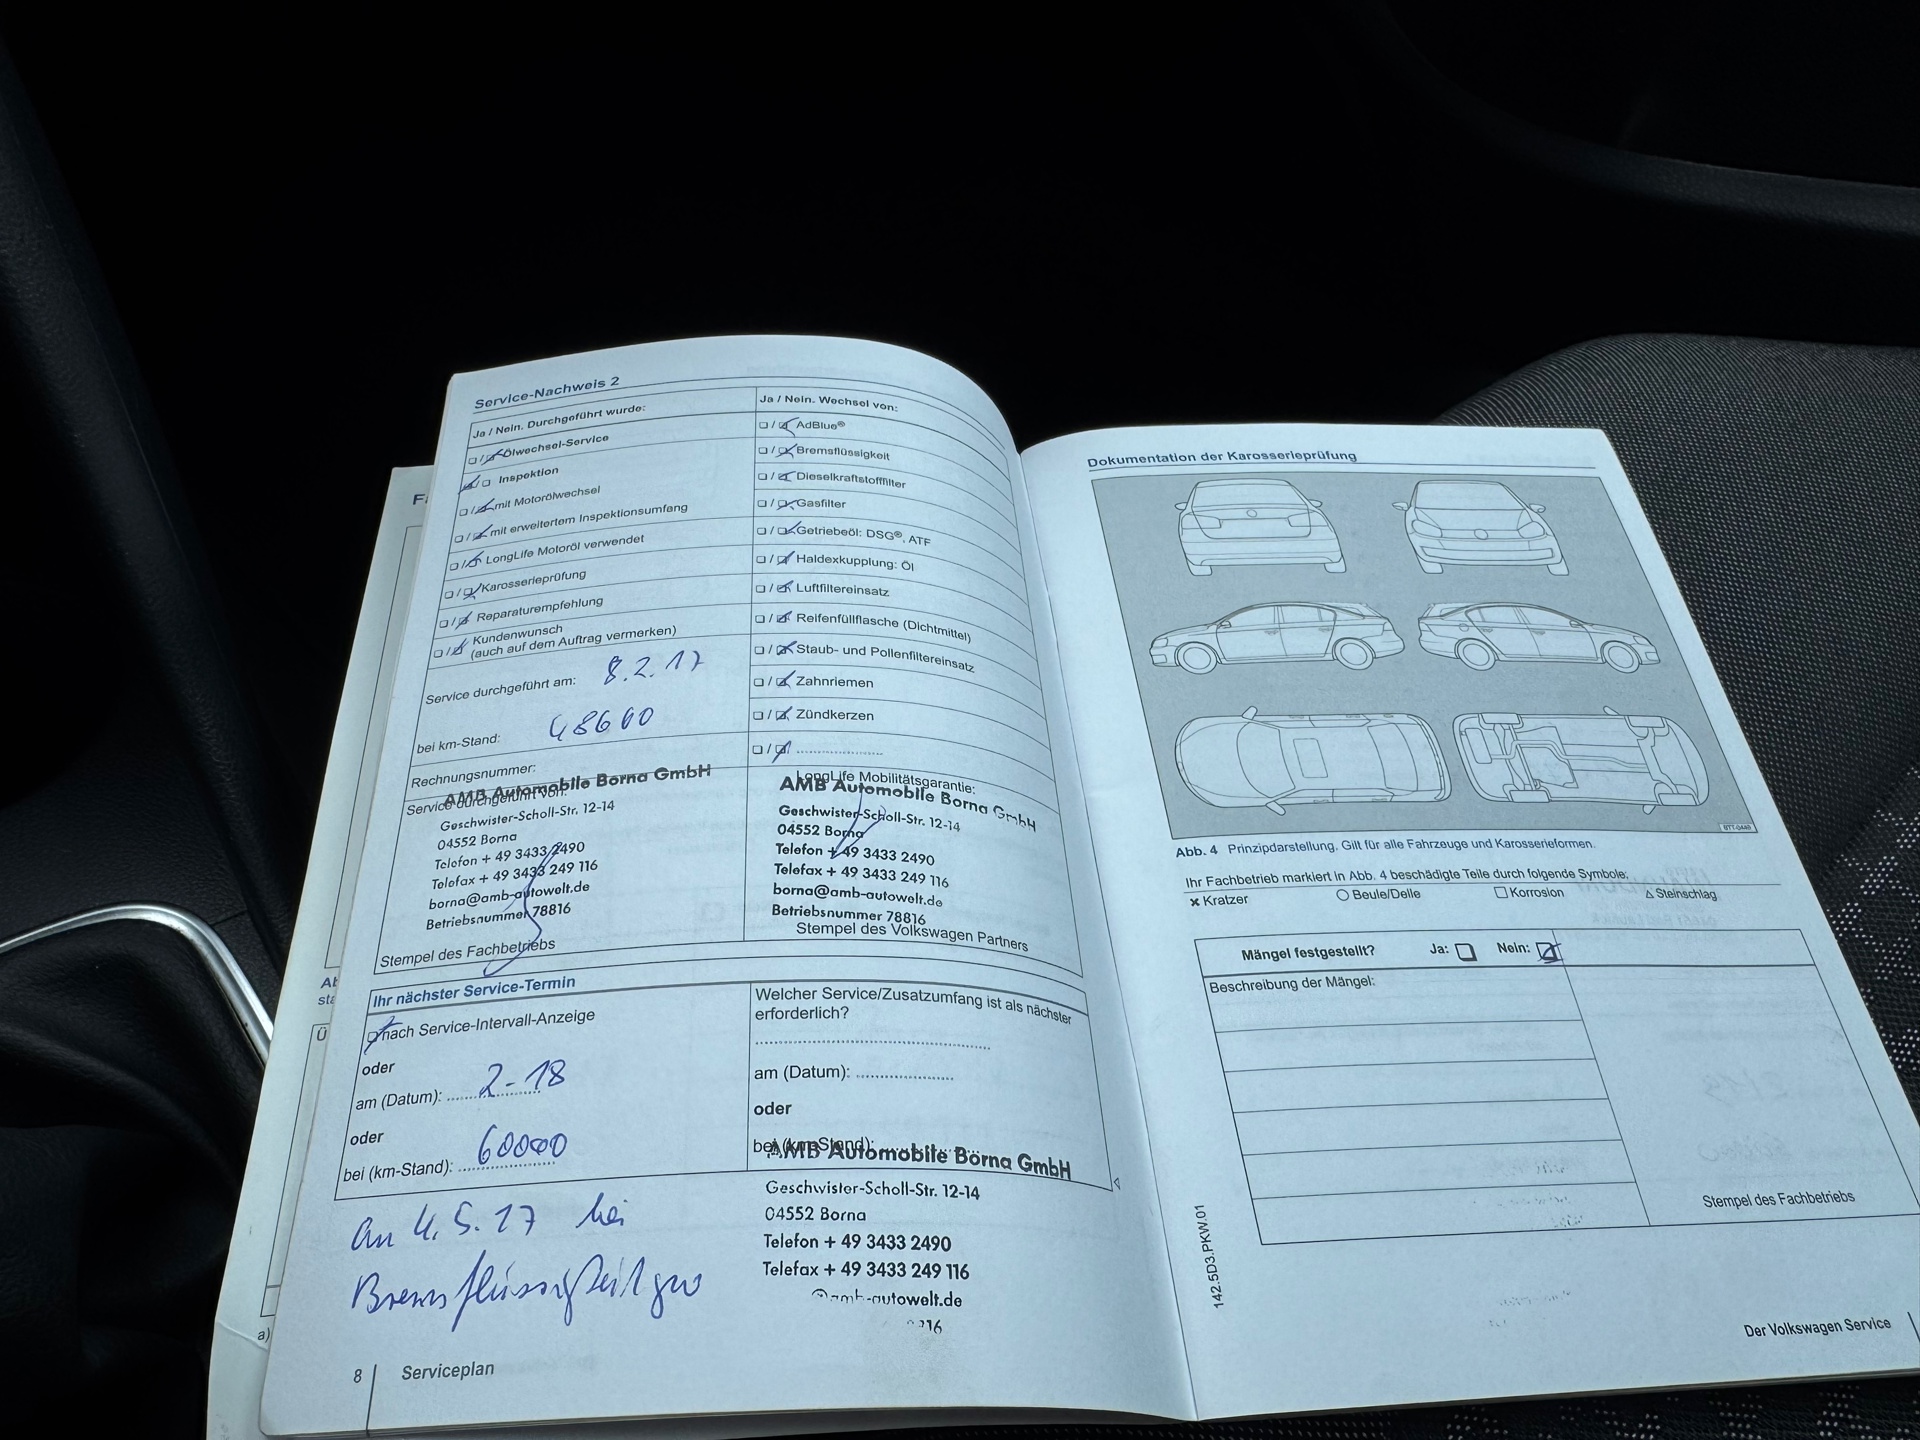 Service-Nachweis 2
Ja / Nein. Durchgeführt wurde:
Ölwechsel-Service
Inspektion
mit Motorölwechsel
mit erweitertem Inspektionsumfang
LongLife Motoröl verwendet
Karosserieprüfung
Reparaturempfehlung
Kundenwunsch
(auch auf dem Auftrag vermerken)
Service durchgeführt am: 8.2.17
bei km-Stand: 48660
Rechnungsnummer:
Service durchgeführt von:
AMB Automobile Borna GmbH
Geschwister-Scholl-Str. 12-14
04552 Borna
Telefon + 49 3433 2490
Telefax + 49 3433 249 116
borna@amb-autowelt.de
Betriebsnummer 78816
Stempel des Fachbetriebs
Ja / Nein. Wechsel von:
AdBlue®
Bremsflüssigkeit
Dieselkraftstofffilter
Gasfilter
Getriebeöl: DSG®, ATF
Haldexkupplung: Öl
Luftfiltereinsatz
Reifenfüllflasche (Dichtmittel)
Staub- und Pollenfiltereinsatz
Zahnriemen
Zündkerzen
LongLife Mobilitätsgarantie:
AMB Automobile Borna GmbH
Geschwister-Scholl-Str. 12-14
04552 Borna
Telefon + 49 3433 2490
Telefax + 49 3433 249 116
borna@amb-autowelt.de
Betriebsnummer 78816
Stempel des Volkswagen Partners
Ihr nächster Service-Termin
nach Service-Intervall-Anzeige
oder
am (Datum): 2-18
oder
bei (km-Stand): 60000
Welcher Service/Zusatzumfang ist als nächster
erforderlich?
am (Datum):
oder
bei (km-Stand):
AMB Automobile Borna GmbH
Geschwister-Scholl-Str. 12-14
04552 Borna
Telefon + 49 3433 2490
Telefax + 49 3433 249 116
@amb-autowelt.de
816
An 4.5.17 bei
Bremsflüssigkeit
8 Serviceplan
Dokumentation der Karosserieprüfung
BTT-0449
Abb. 4 Prinzipdarstellung. Gilt für alle Fahrzeuge und Karosserieformen.
Ihr Fachbetrieb markiert in Abb. 4 beschädigte Teile durch folgende Symbole:
Kratzer Beule/Delle Korrosion Steinschlag
Mängel festgestellt? Ja: Nein:
Beschreibung der Mängel:
Stempel des Fachbetriebs
142.5D3.PKW.01
Der Volkswagen Service